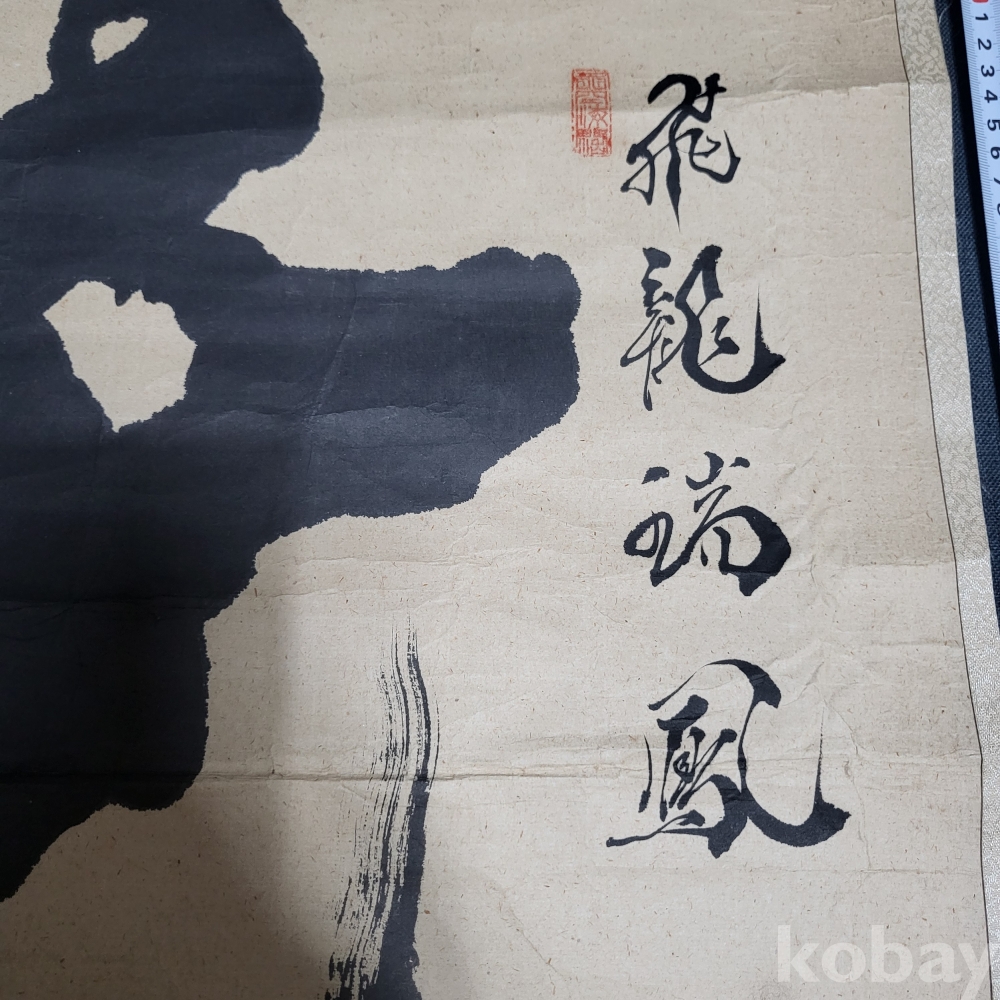 飛龍瑞鳳
1 2 3 4 5 6 7
kobay